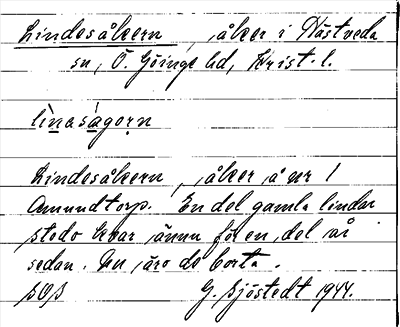 Lindesåkern, åker i Hästveda
sn, Ö. Göinge hd, Krist. l.
lìnasàgorn
Lindesåkern, åker å nr 1
Amundtorp. En del gamla lindar
stodo kvar ännu för en del år
sedan. Nu äro de borta.
G. Sjöstedt 1944.